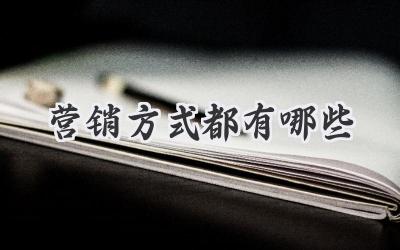 营销方式都有哪些